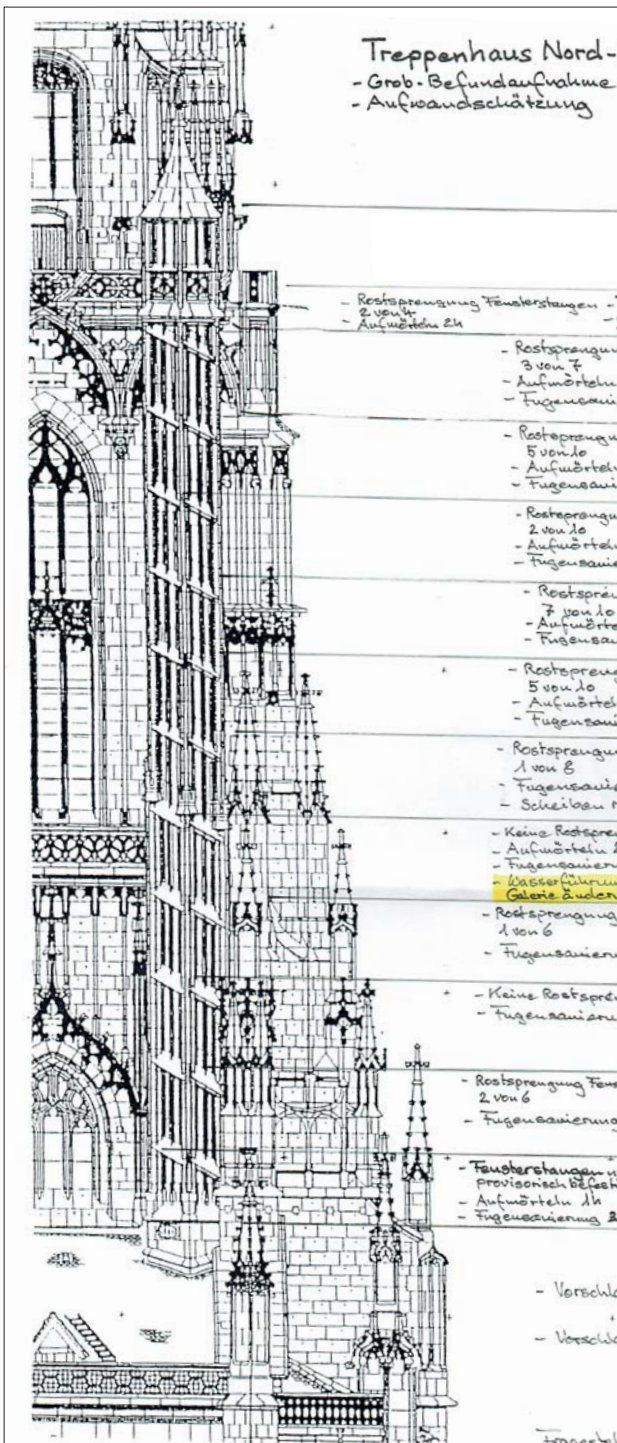 Treppenhaus Nord-
- Grob-Befundaufnahme
- Aufwandschätzung
- Rostsprengung Fensterstangen -
2 von 4
- Aufmörteln 2h
- Rostsprengu
3 von 7
- Aufmörteln
- Fugensani
- Rostsprengu
5 von 10
- Aufmörteln
- Fugensani
- Rostsprengu
2 von 10
- Aufmörteln
- Fugensanie
- Rostspren
7 von 10
- Aufmörte
- Fugensan
- Rostspreng
5 von 10
- Aufmörteln
- Fugensani
- Rostsprengun
1 von 8
- Fugensanie
- Scheiben
- Keine Rostspren
- Aufmörteln
- Fugensanierun
- Wasserführun
Galerie ändern
- Rostsprengung
1 von 6
- Fugensanieru
- Keine Rostspre
- Fugensanieru
- Rostsprengung Fens
2 von 6
- Fugensanierung
- Fensterstangen
provisorisch befesti
- Aufmörteln 1h
- Fugensanierung
- Vorschl
- Vorschl